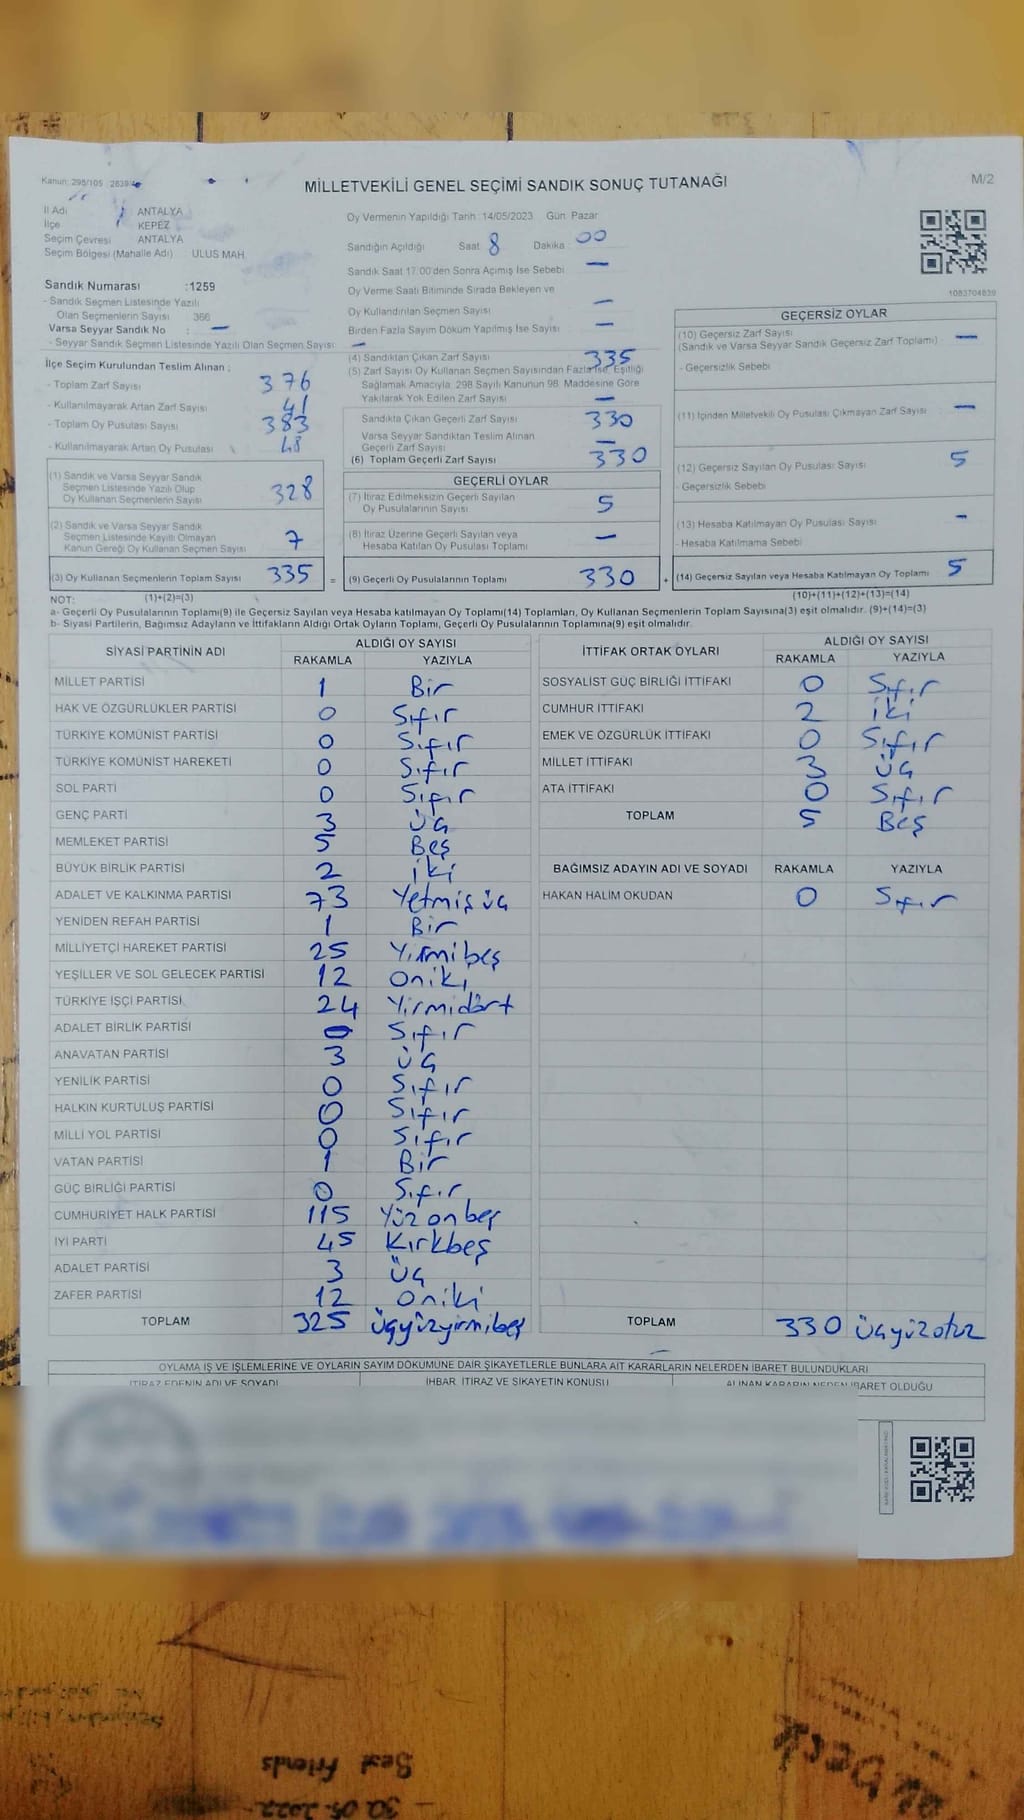 Kanun: 298/105 2839/
MİLLETVEKİLİ GENEL SEÇİMİ SANDIK SONUÇ TUTANAĞI
M/2
İl Adı ANTALYA
İlçe KEPEZ
Seçim Çevresi ANTALYA
Seçim Bölgesi (Mahalle Adı) ULUS MAH.
Sandık Numarası :1259
- Sandık Seçmen Listesinde Yazılı
Olan Seçmenlerin Sayısı 366
Varsa Seyyar Sandık No : —
- Seyyar Sandık Seçmen Listesinde Yazılı Olan Seçmen Sayısı: —
İlçe Seçim Kurulundan Teslim Alınan ;
- Toplam Zarf Sayısı 376
- Kullanılmayarak Artan Zarf Sayısı 41
- Toplam Oy Pusulası Sayısı 383
- Kullanılmayarak Artan Oy Pusulası 48
(1) Sandık ve Varsa Seyyar Sandık
Seçmen Listesinde Yazılı Olup
Oy Kullanan Seçmenlerin Sayısı 328
(2) Sandık ve Varsa Seyyar Sandık
Seçmen Listesinde Kayıtlı Olmayan
Kanun Gereği Oy Kullanan Seçmen Sayısı 7
(3) Oy Kullanan Seçmenlerin Toplam Sayısı 335 =
Oy Vermenin Yapıldığı Tarih: 14/05/2023 Gün: Pazar
Sandığın Açıldığı Saat 8 Dakika 00
Sandık Saat 17.00'den Sonra Açımış İse Sebebi —
Oy Verme Saati Bitiminde Sırada Bekleyen ve
Oy Kullandırılan Seçmen Sayısı —
Birden Fazla Sayım Döküm Yapılmış İse Sayısı —
(4) Sandıktan Çıkan Zarf Sayısı 335
(5) Zarf Sayısı Oy Kullanan Seçmen Sayısından Fazla İse, Eşitliği
Sağlamak Amacıyla, 298 Sayılı Kanunun 98. Maddesine Göre
Yakılarak Yok Edilen Zarf Sayısı —
Sandıkta Çıkan Geçerli Zarf Sayısı 330
Varsa Seyyar Sandıktan Teslim Alınan
Geçerli Zarf Sayısı —
(6) Toplam Geçerli Zarf Sayısı 330
GEÇERLİ OYLAR
(7) İtiraz Edilmeksizin Geçerli Sayılan
Oy Pusulalarının Sayısı 5
(8) İtiraz Üzerine Geçerli Sayılan veya
Hesaba Katılan Oy Pusulası Toplamı —
(9) Geçerli Oy Pusulalarının Toplamı 330 +
1083704839
GEÇERSİZ OYLAR
(10) Geçersiz Zarf Sayısı
(Sandık ve Varsa Seyyar Sandık Geçersiz Zarf Toplamı) —
- Geçersizlik Sebebi
(11) İçinden Milletvekili Oy Pusulası Çıkmayan Zarf Sayısı —
(12) Geçersiz Sayılan Oy Pusulası Sayısı 5
- Geçersizlik Sebebi
(13) Hesaba Katılmayan Oy Pusulası Sayısı —
- Hesaba Katılmama Sebebi
(14) Geçersiz Sayılan veya Hesaba Katılmayan Oy Toplamı 5
NOT: (1)+(2)=(3) (10)+(11)+(12)+(13)=(14)
a- Geçerli Oy Pusulalarının Toplamı(9) ile Geçersiz Sayılan veya Hesaba katılmayan Oy Toplamı(14) Toplamları, Oy Kullanan Seçmenlerin Toplam Sayısına(3) eşit olmalıdır. (9)+(14)=(3)
b- Siyasi Partilerin, Bağımsız Adayların ve İttifakların Aldığı Ortak Oyların Toplamı, Geçerli Oy Pusulalarının Toplamına(9) eşit olmalıdır.
SİYASİ PARTİNİN ADI ALDIĞI OY SAYISI
RAKAMLA YAZIYLA
MİLLET PARTİSİ 1 Bir
HAK VE ÖZGÜRLÜKLER PARTİSİ 0 Sıfır
TÜRKİYE KOMÜNİST PARTİSİ 0 Sıfır
TÜRKİYE KOMÜNİST HAREKETİ 0 Sıfır
SOL PARTİ 0 Sıfır
GENÇ PARTİ 3 Üç
MEMLEKET PARTİSİ 5 Beş
BÜYÜK BİRLİK PARTİSİ 2 iki
ADALET VE KALKINMA PARTİSİ 73 Yetmiş üç
YENİDEN REFAH PARTİSİ 1 Bir
MİLLİYETÇİ HAREKET PARTİSİ 25 Yirmibeş
YEŞİLLER VE SOL GELECEK PARTİSİ 12 Oniki
TÜRKİYE İŞÇİ PARTİSİ 24 Yirmidört
ADALET BİRLİK PARTİSİ 0 Sıfır
ANAVATAN PARTİSİ 3 Üç
YENİLİK PARTİSİ 0 Sıfır
HALKIN KURTULUŞ PARTİSİ 0 Sıfır
MİLLİ YOL PARTİSİ 0 Sıfır
VATAN PARTİSİ 1 Bir
GÜÇ BİRLİĞİ PARTİSİ 0 Sıfır
CUMHURİYET HALK PARTİSİ 115 Yüz onbeş
İYİ PARTİ 45 Kırkbeş
ADALET PARTİSİ 3 Üç
ZAFER PARTİSİ 12 Oniki
TOPLAM 325 Üçyüzyirmibeş
İTTİFAK ORTAK OYLARI ALDIĞI OY SAYISI
RAKAMLA YAZIYLA
SOSYALİST GÜÇ BİRLİĞİ İTTİFAKI 0 Sıfır
CUMHUR İTTİFAKI 2 iki
EMEK VE ÖZGÜRLÜK İTTİFAKI 0 Sıfır
MİLLET İTTİFAKI 3 Üç
ATA İTTİFAKI 0 Sıfır
TOPLAM 5 Beş
BAĞIMSIZ ADAYIN ADI VE SOYADI RAKAMLA YAZIYLA
HAKAN HALİM OKUDAN 0 Sıfır
TOPLAM 330 üçyüzotuz
OYLAMA İŞ VE İŞLEMLERİNE VE OYLARIN SAYIM DÖKÜMÜNE DAİR ŞİKAYETLERLE BUNLARA AİT KARARLARIN NELERDEN İBARET BULUNDUKLARI
İTİRAZ EDENİN ADI VE SOYADI İHBAR, İTİRAZ VE ŞİKAYETİN KONUSU ALINAN KARARIN NEDEN İBARET OLDUĞU
Best
Friends
30.05.2022